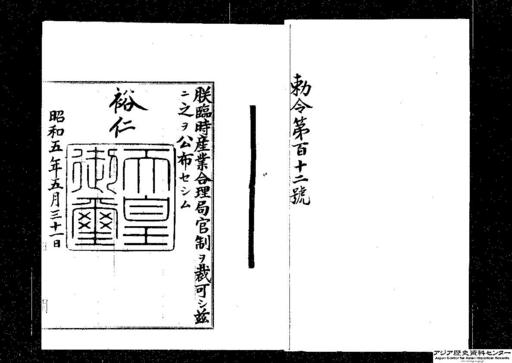 勅令第百十二號
朕臨時産業合理局官制ヲ裁可シ茲
ニ之ヲ公布セシム
裕仁
天皇御璽
昭和五年五月三十一日
アジア歴史資料センター
Japan Center for Asian Historical Records